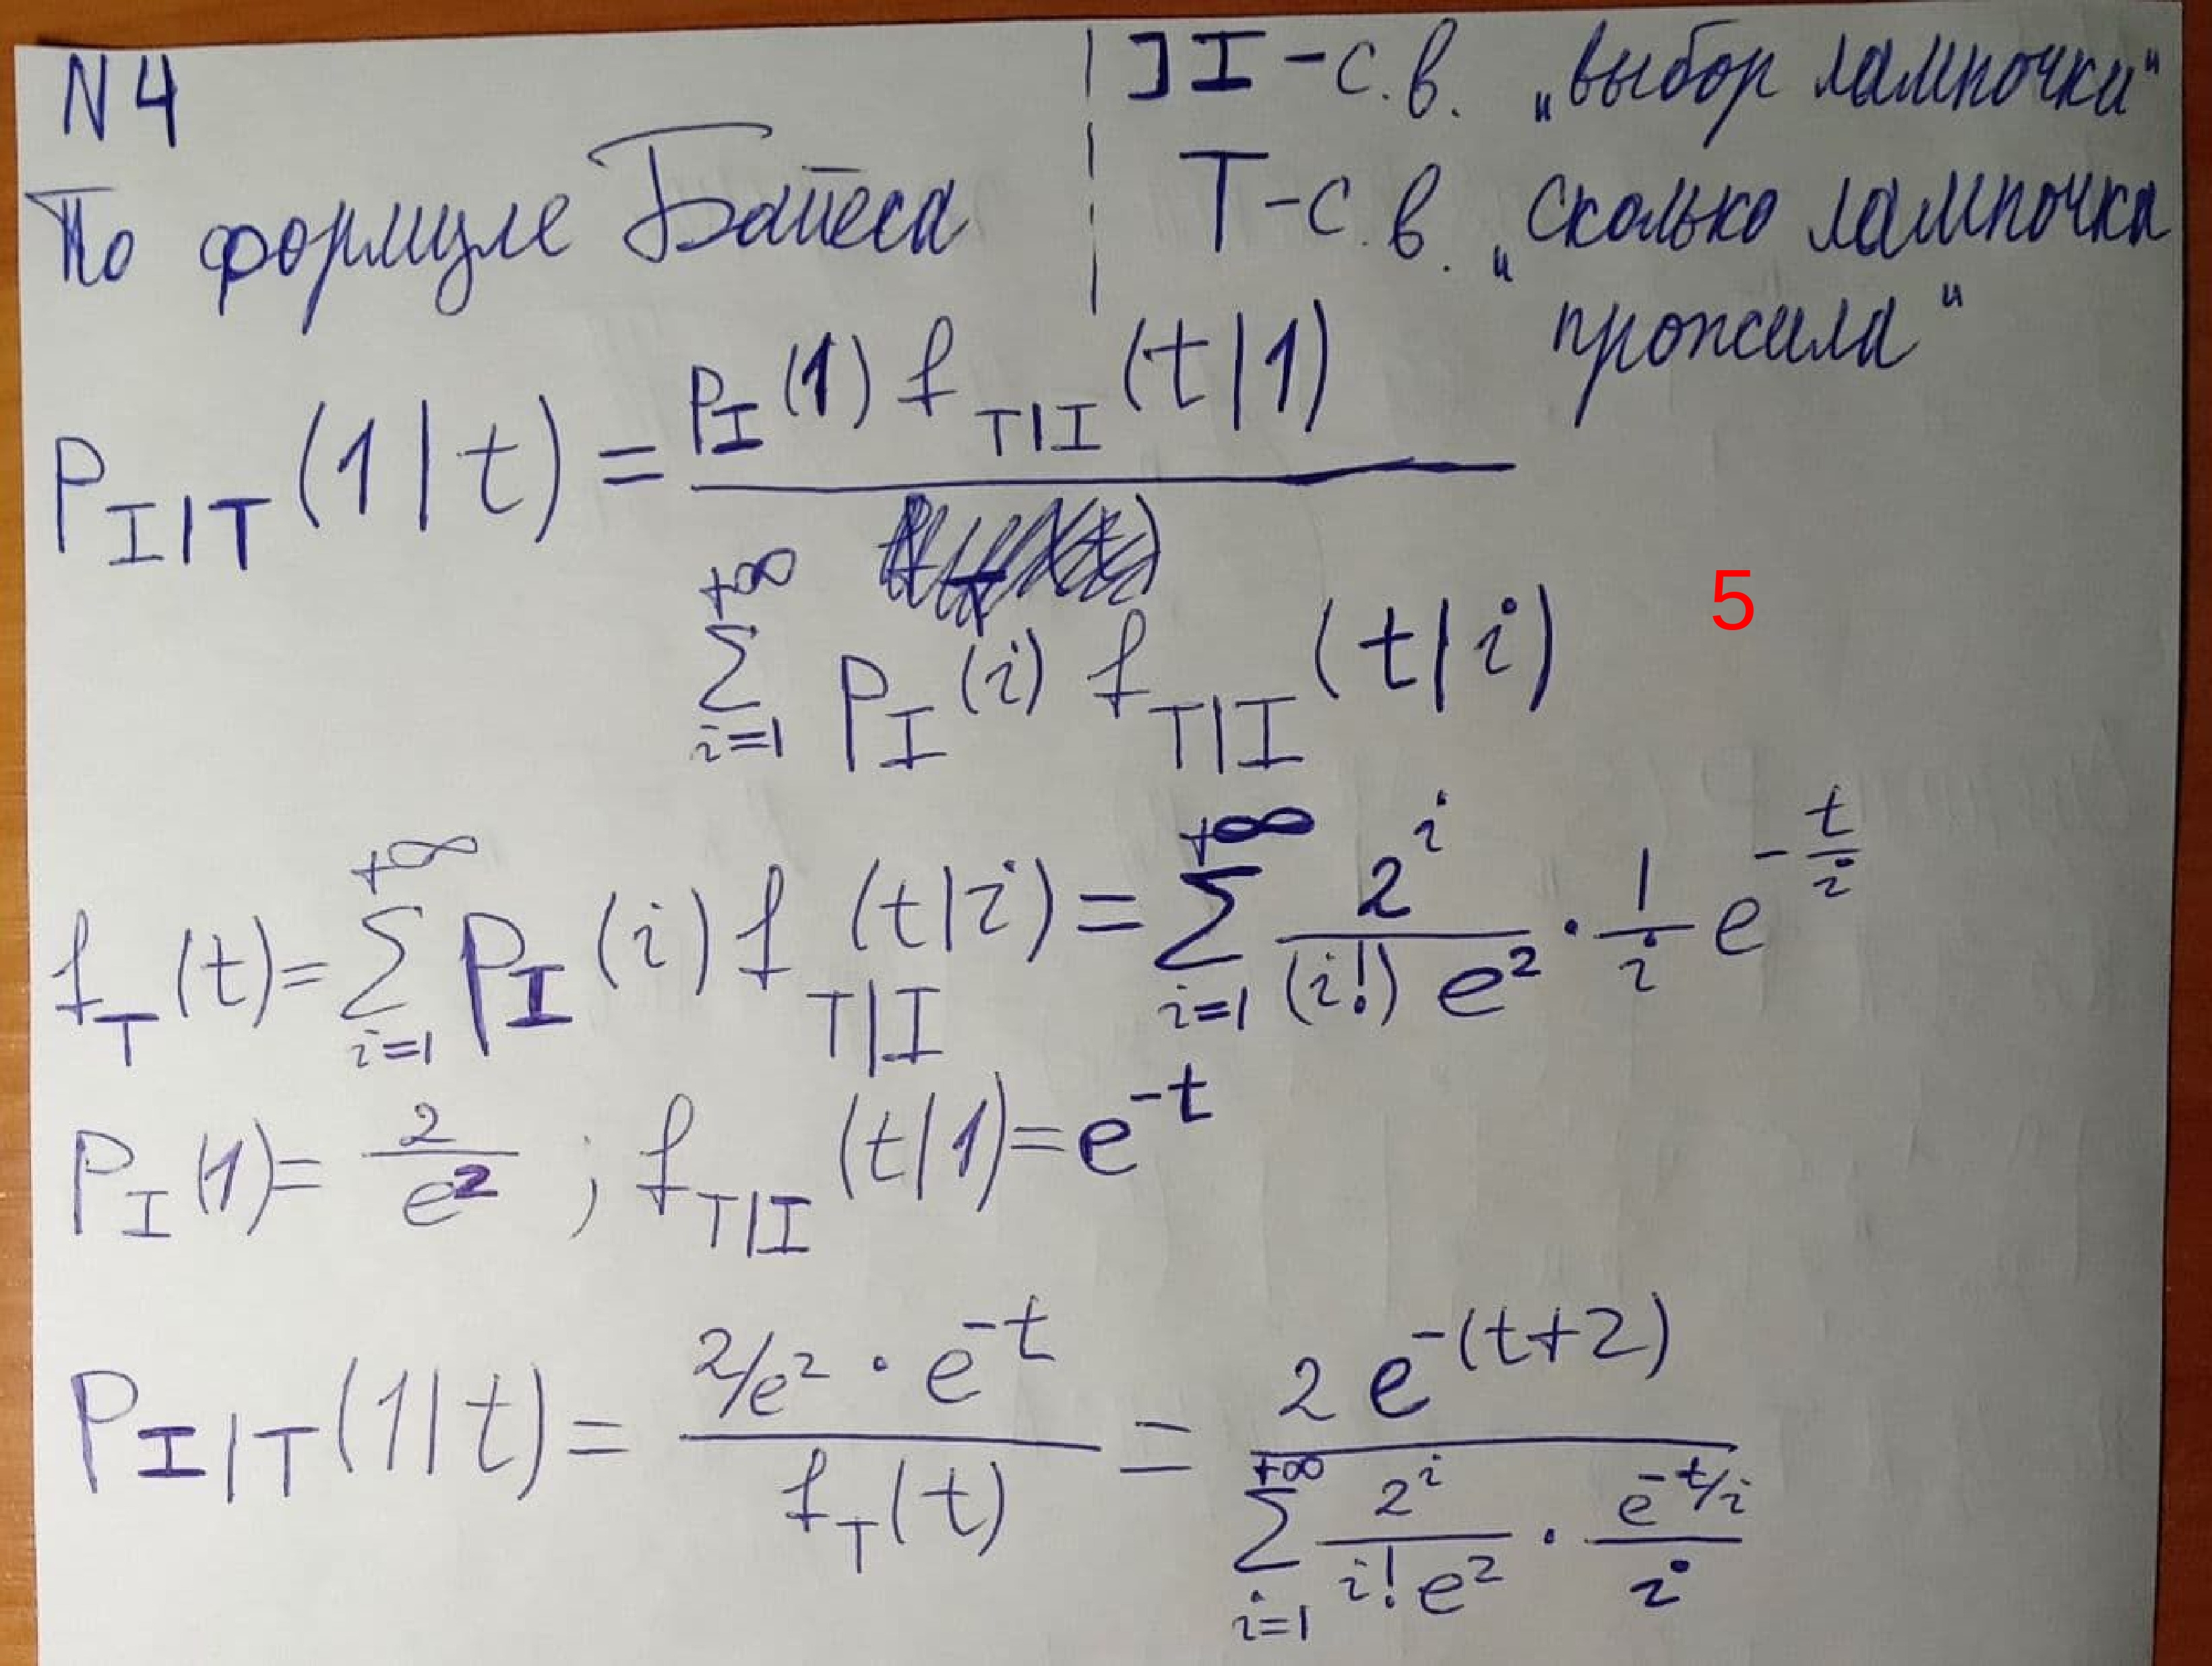 N4
По формуле Байеса
] I - с.в. „выбор лампочки"
T - с.в. „сколько лампочка
прожила"
P_{I|T}(1|t) = \frac{p_I(1) f_{T|I}(t|1)}{\sum_{i=1}^{+∞} p_I(i) f_{T|I}(t|i)}
5
f_T(t) = \sum_{i=1}^{+∞} p_I(i) f_{T|I}(t|i) = \sum_{i=1}^{+∞} \frac{2^i}{(i!) e^2} · \frac{1}{i} e^{-\frac{t}{i}}
P_I(1) = \frac{2}{e^2} ; f_{T|I}(t|1) = e^{-t}
P_{I|T}(1|t) = \frac{2/e^2 · e^{-t}}{f_T(t)} = \frac{2 e^{-(t+2)}}{\sum_{i=1}^{+∞} \frac{2^i}{i! e^2} · \frac{e^{-t/i}}{i}}